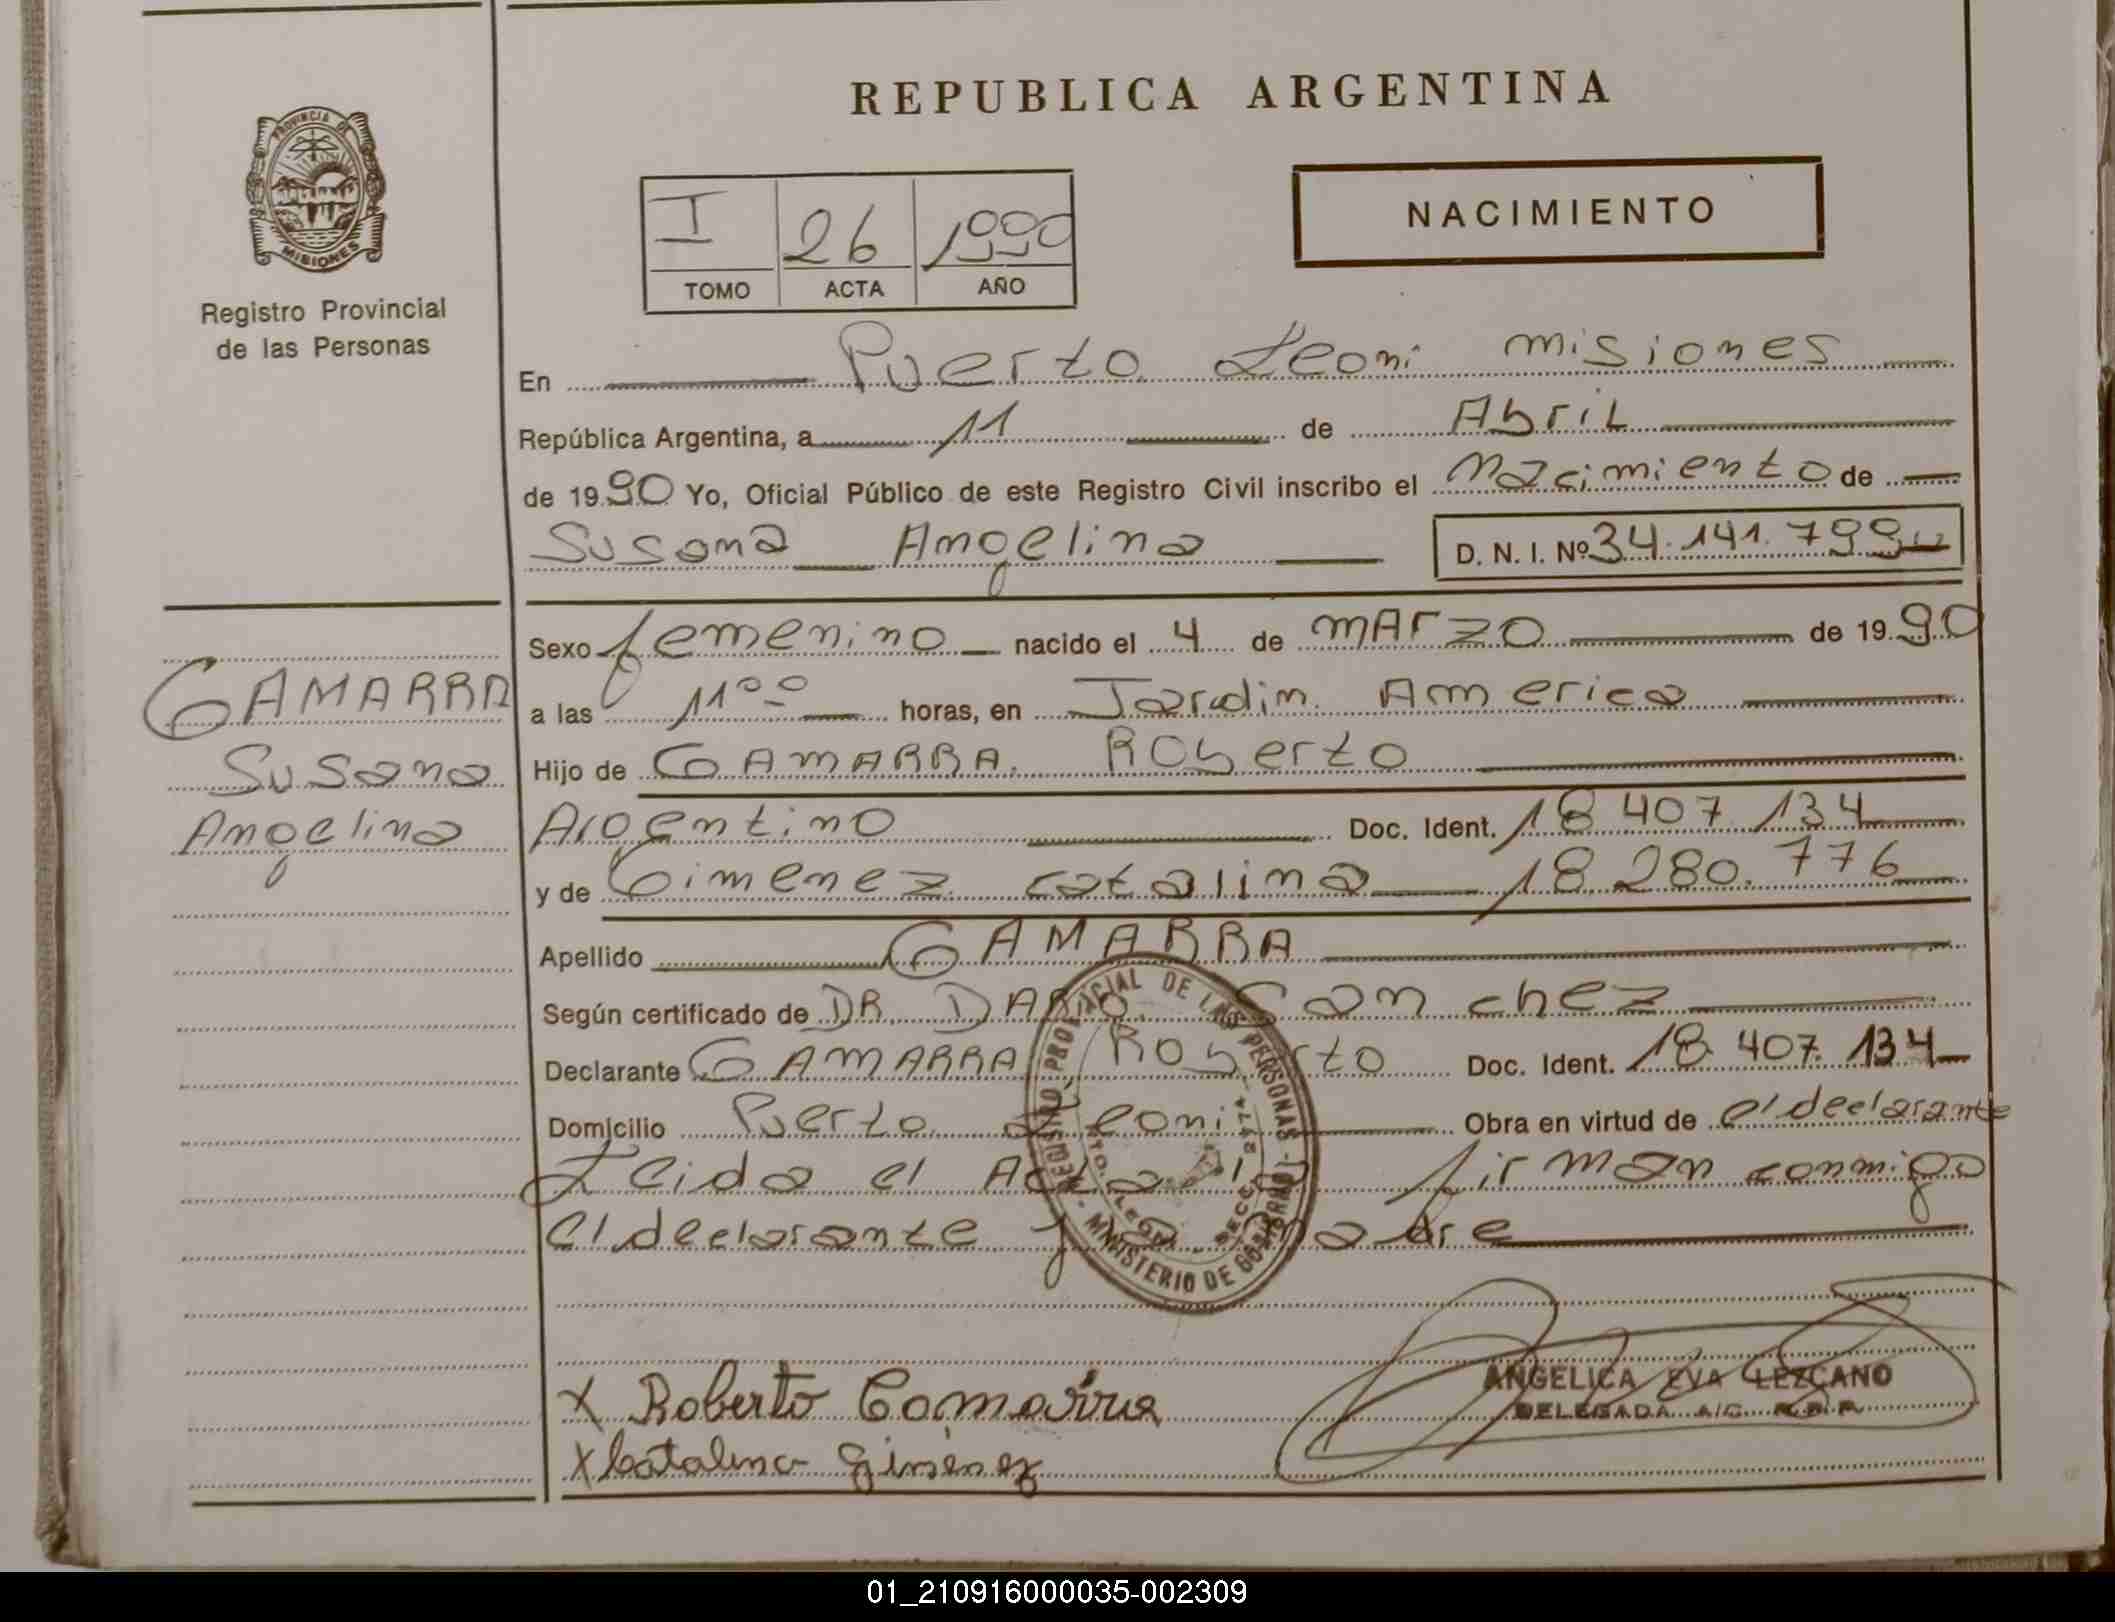 REPUBLICA ARGENTINA
PROVINCIA DE
MISIONES
Registro Provincial
de las Personas
I 26 1990
TOMO ACTA AÑO
NACIMIENTO
En Puerto Leoni misiones
República Argentina, a 11 de Abril
de 1990 Yo, Oficial Público de este Registro Civil inscribo el Nacimiento de
Susana Angelina D. N. I. Nº 34.141.799
Sexo femenino nacido el 4 de mArzo de 1990
a las 11⁰⁰ horas, en Jardin America
Hijo de GAMARRA. Roberto
Argentino Doc. Ident. 18 407 134
y de Gimenez catalina 18 280.776
Apellido GAMARRA
Según certificado de DR. DARIO Sanchez
Declarante GAMARRA Roberto Doc. Ident. 18.407.134
Domicilio Puerto Leoni Obra en virtud de el declarante
Leida el Acta firman conmigo
el declarante y madre
GAMARRA
Susana
Angelina
REGISTRO PROVINCIAL DE LAS PERSONAS - MINISTERIO DE GOBIERNO -
X Roberto Gamarra
X Catalina Gimenez
ANGELICA EVA LEZCANO
DELEGADA A/C R.P.P.
01_210916000035-002309